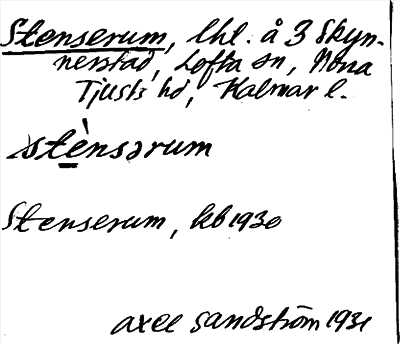 Stenserum, lhl. å 3 Skyn-
nerstad, Lofta sn, Norra
Tjusts hd, Kalmar l.
stènsərum
Stenserum, kb 1930
Axel Sandström 1931